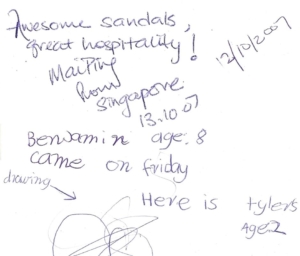 Awesome sandals,
great hospitality!
12/10/2007
Mai Ping
from
Singapore
13.10.07
Benjamin age. 8
came on friday
drawing
Here is tylers
Age 2